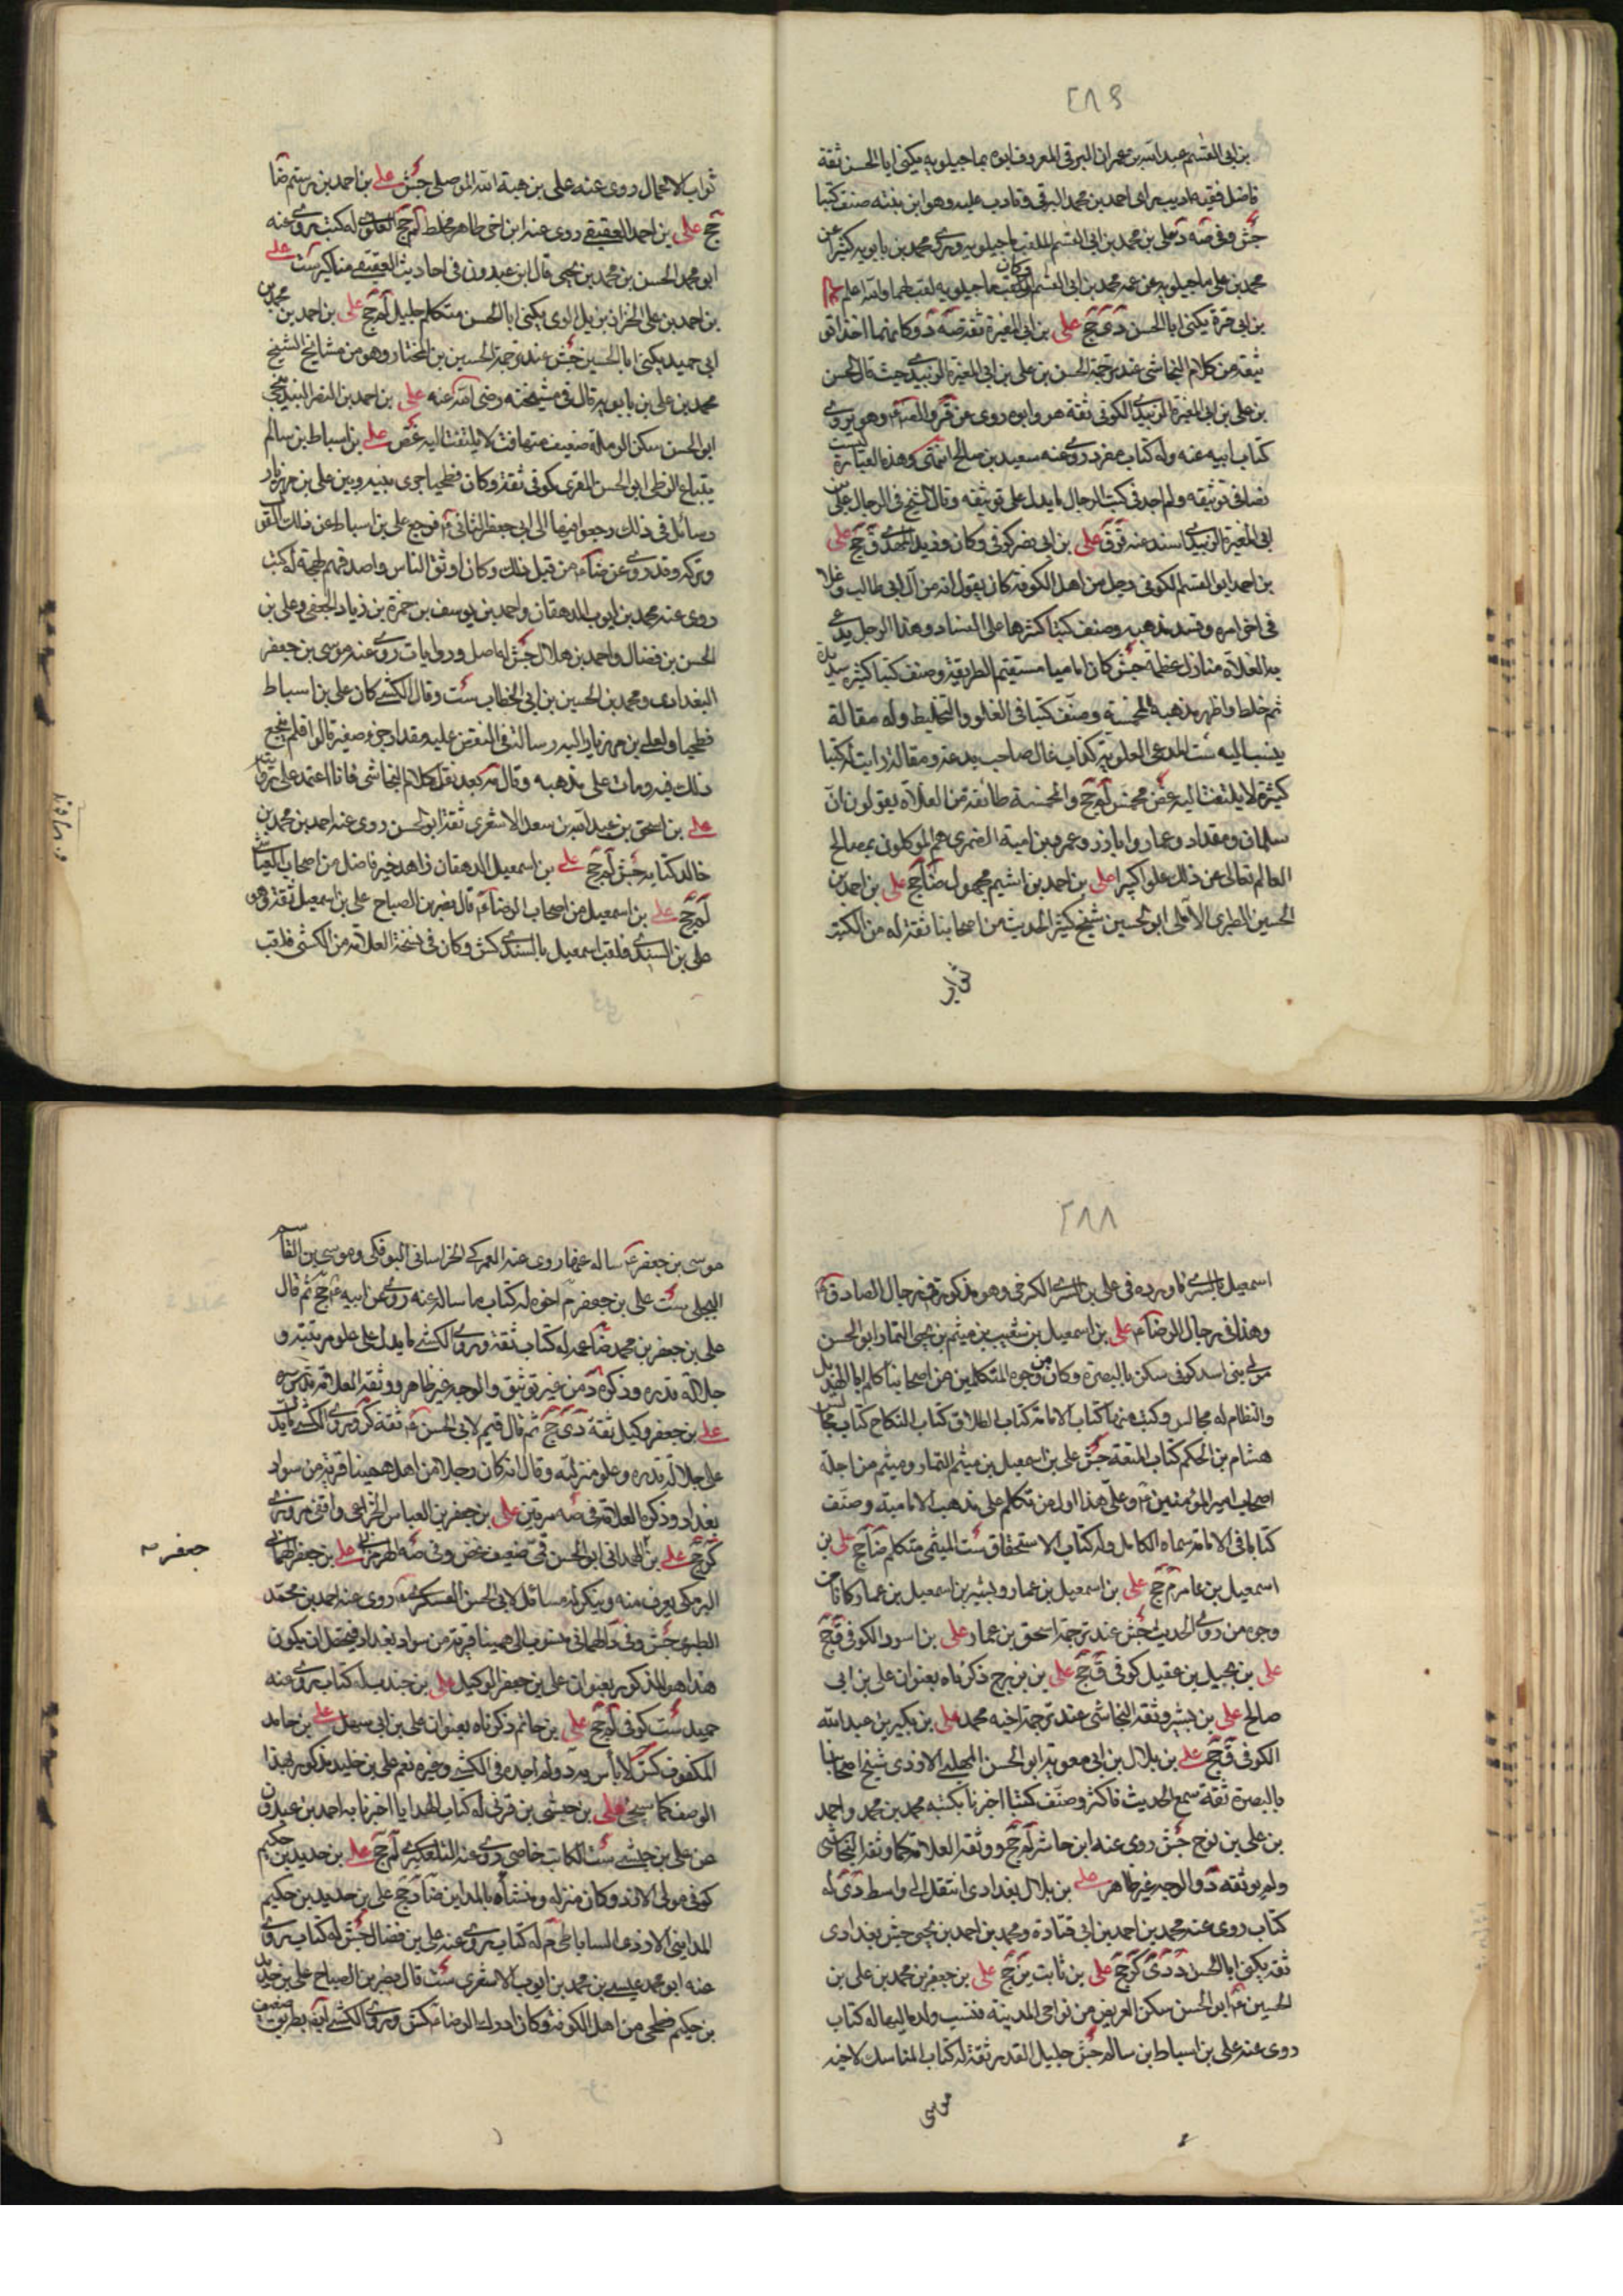 ٢٨٩
بن ابی القسم عبد الله بن عمران البرقی المعروف ابوه بماجیلویه یکنی ابا الحسن ثقة
فاضل فقیه ادیب رای احمد بن محمد البرقی و تادب علیه و هو ابن بنته صنف کتبا
جش و فی صه د علی بن محمد بن ابی القسم الملقب ماجیلویه روی محمد بن بابویه کثیرا عن
محمد بن علی ماجیلویه عن عمه محمد بن ابی القسم و کان لقب ماجیلویه لقب لهما والله اعلم
بن ابی قرة یکنی ابا الحسن دی جخ علی بن ابی المغیرة ثقة صه د و کانهما اخذا تو
ثیقه من کلام النجاشی عند ترجمة الحسن بن علی بن ابی المغیرة الزبیدی حیث قال الحسن
بن علی بن ابی المغیرة الزبیدی الکوفی ثقة هو و ابوه روی عن قر و و هو یروی
کتاب ابیه عنه و له کتاب مفرد روی عنه سعید بن صالح انتهی و هذه العبارة لیست
نصا فی توثیقه و لم اجد فی کتب الرجال ما یدل علی توثیقه و قال الشیخ فی الرجال علی بن
ابی المغیرة الزبیدی اسند عنه ق علی بن ابی نصر کوفی و کان و فید المهدی ق جخ علی
بن احمد ابو القسم الکوفی رجل من اهل الکوفة کان یقول انه من آل ابی طالب و غلا
فی اخر امره و فسد مذهبه و صنف کتبا کثیرة اکثرها علی الفساد و هذا الرجل یدعی
به الغلاة منازل عظیمة جش کان امامیا مستقیم الطریقة و صنف کتبا کثیرة سدیدة
ثم خلط و اظهر مذهب المخمسة و صنف کتبا فی الغلو و التخلیط و له مقالة
ینسب الیه ست المدعی العلویة کذاب غال صاحب بدعة و مقالة رایت له کتبا
کثیرة لا یلتفت الیه غض مخمس لم جخ و المخمسة طائفة من الغلاة یقولون ان
سلمان و مقداد و عمار و ابا ذر و عمرو بن امیة الضمری هم الموکلون بمصالح
العالم تعالی عن ذلک علوا کبیرا علی بن احمد بن اشیم مجهول ضا جخ علی بن احمد بن
الحسین الطبری الآملی ابو الحسین شیخ کثیر الحدیث من اصحابنا ثقة له من الکتب
ثواب
ثواب الاعمال روی عنه علی بن هبة الله الموصلی جش علی بن احمد بن رستم ضا
جخ علی بن احمد العقیقی روی عنه ابن اخی طاهر مخلط لم جخ العلوی له کتب روی عنه
ابو محمد الحسن بن محمد بن یحیی قال ابن عبدون فی احادیث العقیقی مناکیر ست علی
بن احمد بن علی الخزاز نزیل الری یکنی ابا الحسن متکلم جلیل لم جخ علی بن احمد بن محمد بن
ابی جید یکنی ابا الحسین جش عند ترجمة الحسین بن المختار و هو من مشایخ الشیخ
محمد بن علی بن بابویه قال فی مشیخته رضی الله عنه علی بن احمد بن النصر البندنیجی
ابو الحسن سکن الرملة ضعیف متهافت لا یلتفت الیه غض علی بن اسباط بن سالم
بیاع الزطی ابو الحسن المقری کوفی ثقة و کان فطحیا جری بینه و بین علی بن مهزیار
رسائل فی ذلک رجعوا فیها الی ابی جعفر الثانی ع فرجع علی بن اسباط عن ذلک القول
و ترکه و قد روی عن ضا ع من قبل ذلک و کان اوثق الناس و اصدقهم لهجة له کتب
روی عنه محمد بن ایوب الدهقان و احمد بن یوسف بن حمزة بن زیاد الجعفی و علی بن
الحسن بن فضال و احمد بن هلال جش له اصل و روایات روی عنه موسی بن جعفر
البغدادی و محمد بن الحسین بن ابی الخطاب ست و قال الکشی کان علی بن اسباط
فطحیا و لعلی بن مهزیار الیه رسالة فی النقض علیه مقدار جزو صغیر قالوا فلم ینجع
ذلک فیه و مات علی مذهبه و قال مه بعد نقل کلام النجاشی فانا اعتمد علی روایته
علی بن اسحق بن عبد الله بن سعد الاشعری ثقة ابو الحسن روی عنه احمد بن محمد بن
خالد کتابه جش لم جخ علی بن اسمعیل الدهقان زاهد خیر فاضل من اصحاب العیاشی
لم جخ علی بن اسمعیل من اصحاب الرضا ع قال نصر بن الصباح علی بن اسمعیل ثقة و هو
علی بن السندی فلقب اسمعیل بالسندی کش و کان فی نسخة العلامة من الکشی فلقب
٢٨٨
اسمعیل بالسری فاورده فی علی بن السری الکرخی و هو مذکور فی رجال الصادق ع
و هذا فی رجال الرضا ع علی بن اسمعیل بن شعیب بن میثم بن یحیی التمار ابو الحسن
مولی بنی اسد کوفی سکن بالبصرة و کان من وجوه المتکلمین من اصحابنا کلم ابا الهذیل
و النظام له مجالس و کتب منها کتاب الامامة کتاب الطلاق کتاب النکاح کتاب مجالس
هشام بن الحکم کتاب المتعة جش علی بن اسمعیل بن میثم التمار و میثم من اجلة
اصحاب امیر المؤمنین ع و علی هذا اول من تکلم علی مذهب الامامیة و صنف
کتابا فی الامامة سماه الکامل و له کتاب الاستحقاق ست المیثمی متکلم ضا جخ علی بن
اسمعیل بن عامر م جخ علی بن اسمعیل بن عمار و بشیر بن اسمعیل بن عمار کانا من
وجوه من روی الحدیث جش عند ترجمة اسحق بن عمار علی بن اسود الکوفی ق جخ
علی بن بجیل بن عقیل کوفی ق جخ علی بن بزرج ذکرناه بعنوان علی بن ابی
صالح علی بن بشیر وثقه النجاشی عند ترجمة اخیه محمد علی بن بکیر بن عبد الله
الکوفی ق جخ علی بن بلال بن ابی معویة ابو الحسن المهلبی الازدی شیخ اصحابنا
بالبصرة ثقة سمع الحدیث فاکثر و صنف کتبا اخبرنا بکتبه محمد بن محمد و احمد
بن علی بن نوح جش روی عنه ابن حاشر لم جخ و وثقه العلامة کما وثقه النجاشی
و لم یوثقه د و الوجه غیر ظاهر علی بن بلال بغدادی انتقل الی واسط دی له
کتاب روی عنه محمد بن احمد بن ابی قتادة و محمد بن احمد بن یحیی جش بغدادی
ثقة یکنی ابا الحسن د دی کر جخ علی بن ثابت ین جخ علی بن جعفر بن محمد بن علی بن
الحسین ع ابو الحسن سکن العریض من نواحی المدینة فنسب ولده الیها له کتاب
روی عنه علی بن اسباط بن سالم جش جلیل القدر ثقة له کتاب المناسک لاخیه
موسی
موسی بن جعفر ع ساله عنها روی عنه العمرکی الخراسانی البوفکی و موسی بن القاسم
البجلی ست علی بن جعفر م اخوه له کتاب ما ساله عنه روی عن ابیه ع جخ ثم قال
علی بن جعفر بن محمد ضا عمه له کتاب ثقة و روی الکشی ما یدل علی علو مرتبته و
جلالة قدره و ذکره د من غیر توثیق و الوجه غیر ظاهر و وثقه العلامة قدس سره
علی بن جعفر وکیل ثقة دی جخ ثم قال قیم لابی الحسن ع ثقة کر و روی الکشی ما یدل
علی جلالة قدره و علو منزلته و قال انه کان رجلا من اهل همینیا قریة من سواد
بغداد و ذکره العلامة فی صه مرتین علی بن جعفر بن العباس الخزاعی واقفی مروزی
کر جخ علی بن الهمدانی ابو الحسن قمی ضعیف غض و فی صه الهرمزانی علی بن جعفر الهمانی
البرمکی یعرف منه و ینکر له مسائل لابی الحسن العسکری ع روی عنه احمد بن محمد
الطبری جش و فی د الهمانی منسوب الی همینا قریة من سواد بغداد فیحتمل ان یکون
هذا هو المذکور بعنوان علی بن جعفر الوکیل علی بن جندب له کتاب روی عنه
حمید ست کوفی لم جخ علی بن حاتم ذکرناه بعنوان علی بن ابی سهل علی بن حامد
المکفوف کش لا باس به د و لم اجده فی الکشی و غیره نعم علی بن خلید مذکور بهذا
الوصف کما سیجئ علی بن حبشی بن قونی له کتاب الهدایا اخبرنا به احمد بن عبدون
عن علی بن حبشی ست الکاتب خاصی روی عنه التلعکبری لم جخ علی بن حدید بن حکیم
کوفی مولی الازد و کان منزله و منشاه بالمداین ضا د جخ علی بن حدید بن حکیم
المداینی الازدی الساباطی م له کتاب روی عنه علی بن فضال جش له کتاب روی
عنه ابو محمد عیسی بن محمد بن ایوب الاشعری ست قال نصر بن الصباح علی بن حدید
بن حکیم فطحی من اهل الکوفة و کان ادرک الرضا ع کش و روی الکشی ایضا بطریق ضعیف
جعفر صه